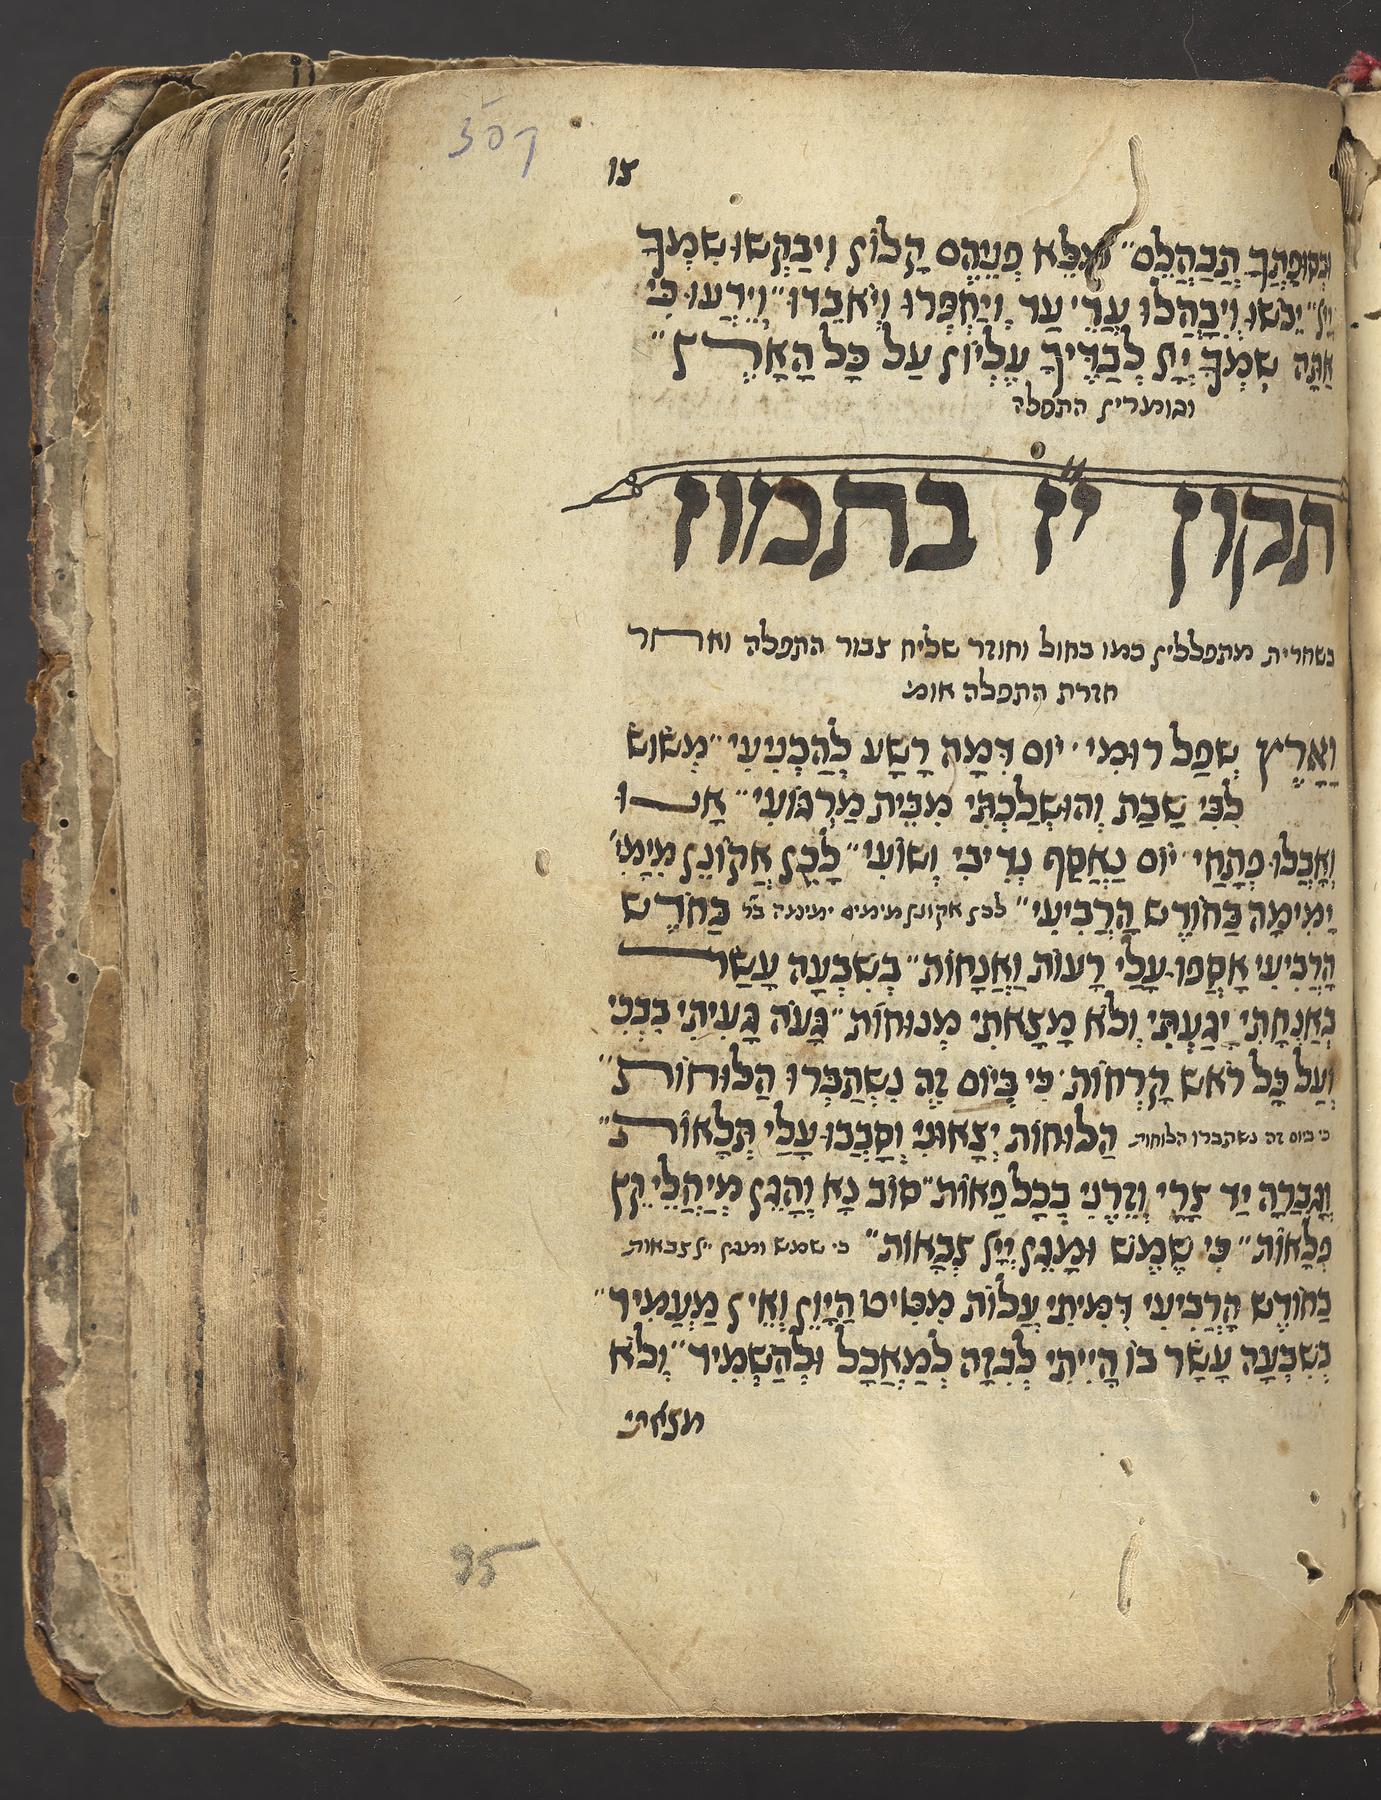 307
צו
וּבְסוּפָתְךָ תְבַהֲלֵם" מַלֵּא פְנֵיהֶם קָלוֹן וִיבַקְשׁוּ שִׁמְךָ
יְיָ" יֵבֹשׁוּ וְיִבָּהֲלוּ עֲדֵי עַד וְיַחְפְּרוּ וְיֹאבֵדוּ" וְיֵדְעוּ כִּי
אַתָּה שִׁמְךָ יְיָ לְבַדֶּךָ עֶלְיוֹן עַל כָּל הָאָרֶץ"
וגומרין התפלה
תקון י"ז בתמוז
בשחרית מתפללין כמו בחול וחוזר שליח צבור התפלה ואחר
חזרת התפלה אומ'
וָאָרֶץ שְׁפַל רוּמִי' יוֹם דִּמָּה רָשָׁע לְהַכְנִיעִי" מְשׂוֹשׂ
לִבִּי שָׁבַת וְהוּשְׁלַכְתִּי מִבֵּית מַרְגּוֹעִי" אָנוּ
וְאָבְלוּ פְּתָחַי' יוֹם נֶאֱסַף נְדִיבִי וְשׁוֹעִי" לָכֵן אֲקוֹנֵן מִיָּמִי'
יָמִימָה בַּחוֹדֶשׁ הָרְבִיעִי" לכן אקונן מימים ימימה בח' בַּחֹדֶשׁ
הָרְבִיעִי אָסְפוּ עָלַי רָעוֹת וַאֲנָחוֹת" בְּשִׁבְעָה עָשָׂר
בְּאַנְחָתִי יָגַעְתִּי וְלֹא מָצָאתִי מְנוּחוֹת" גָּעֹה גָּעִיתִי בִּבְכִי
וְעַל כָּל רֹאשׁ קָרְחוֹת' כִּי בְּיוֹם זֶה נִשְׁתַּבְּרוּ הַלּוּחוֹת"
כי ביום זה נשתברו הלוחות הַלּוּחוֹת יְצָאוּנִי וְסָבְבוּ עָלַי תְּלָאוֹת"
וְגָבְרָה יַד צָרַי וְזֵרֵנִי בְּכָל פֵּאוֹת" סוֹב נָא וְהָגֵן מְיַחֲלֵי קֵץ
פְּלָאוֹת" כִּי שֶׁמֶשׁ וּמָגֵן יְיָ צְבָאוֹת" כי שמש ומגן יי' צבאות
בַּחוֹדֶשׁ הָרְבִיעִי דִּמִּיתִי עֲלוֹת מִטִּיט הַיָּוֵן וְאֵין מַעֲמִיד"
בְּשִׁבְעָה עָשָׂר בּוֹ הָיִיתִי לְבִזָּה לְמַאֲכָל וּלְהַשְׁמִיד" וְלֹא
מצאתי
95